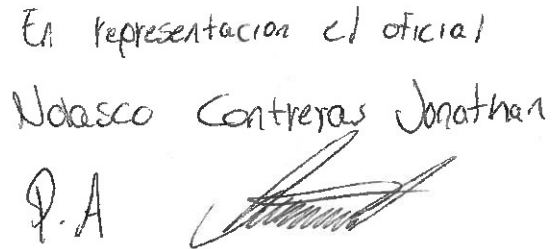 En representacion el oficial
Nolasco Contreras Jonathan
P.A